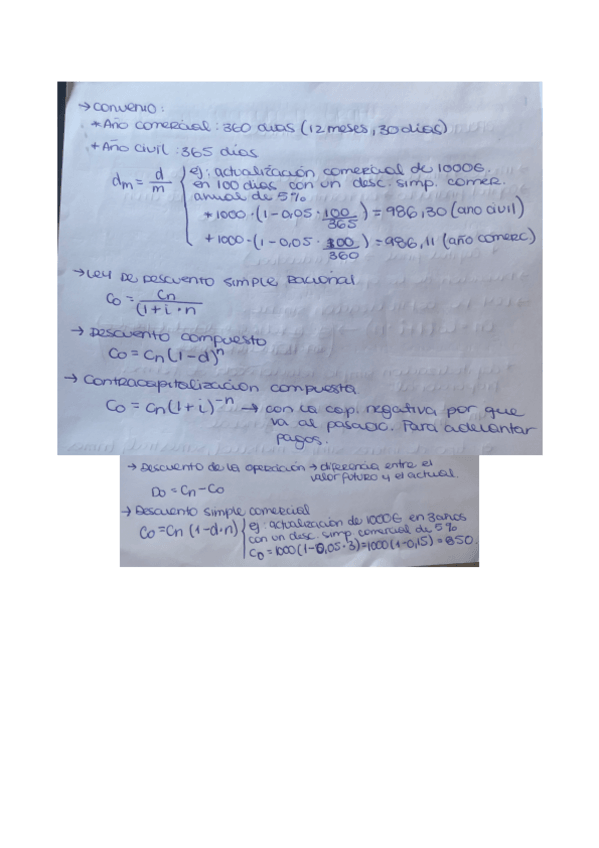 → Convenio:
* Año comercial: 360 dias (12 meses, 30 días)
+ Año civil: 365 días
dm = d/m { ej: actualización comercial de 1000€
en 100 dias con un desc. simp. comer.
anual de 5%
+ 1000 · (1 - 0,05 · 100/365) = 986,30 (ano civil)
+ 1000 · (1 - 0,05 · 100/360) = 986,11 (año comerc.)
→ Ley de descuento simple racional
Co = Cn/(1+i·n
→ Descuento compuesto
Co = Cn(1-d)^n
→ Contracapitalización compuesta
Co = Cn(1+i)^-n → con la cap. negativa por que
va al pasado. Para adelantar
pagos.
→ Descuento de la operación → diferencia entre el
valor futuro y el actual
Do = Cn - Co
→ Descuento simple comercial
Co = Cn (1-d·n) { ej: actualización de 1000€ en 3 años
con un desc. simp. comercial de 5%
Co = 1000(1-0,05·3) = 1000(1-0,15) = 850.